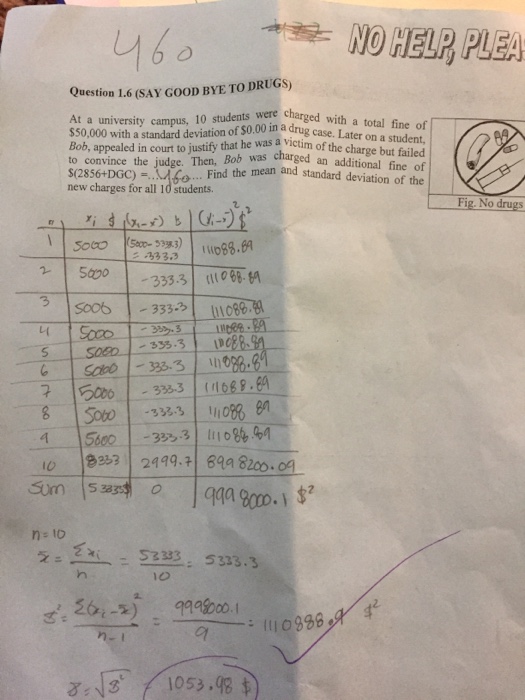 460
NO HELP, PLEA
Question 1.6 (SAY GOOD BYE TO DRUGS)
At a university campus, 10 students were charged with a total fine of
$50,000 with a standard deviation of $0.00 in a drug case. Later on a student,
Bob, appealed in court to justify that he was a victim of the charge but failed
to convince the judge. Then, Bob was charged an additional fine of
$(2856+DGC) =..460... Find the mean and standard deviation of the
new charges for all 10 students.
Fig. No drugs
xi $ (xi-x̄) $ (xi-x̄)² $²
1 5000 (5000-5333.3) = -333.3 111088.89
2 5000 -333.3 111088.89
3 5000 -333.3 111088.89
4 5000 -333.3 111088.89
5 5000 -333.3 111088.89
6 5000 -333.3 111088.89
7 5000 -333.3 111088.89
8 5000 -333.3 111088.89
9 5000 -333.3 111088.89
10 8333 2999.7 8998200.09
Sum 53333$ 0 9998000.1 $²
n=10
x̄ = Σxi/n = 53333/10 = 5333.3
s² = Σ(xi-x̄)²/n-1 = 9998000.1/9 = 1110888.9 $²
s = √s² 1053.98 $